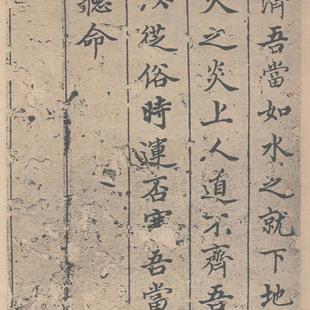 濟吾當如水之就下地
火之炎上人道不齊吾
以從俗時運否吾當
聽命